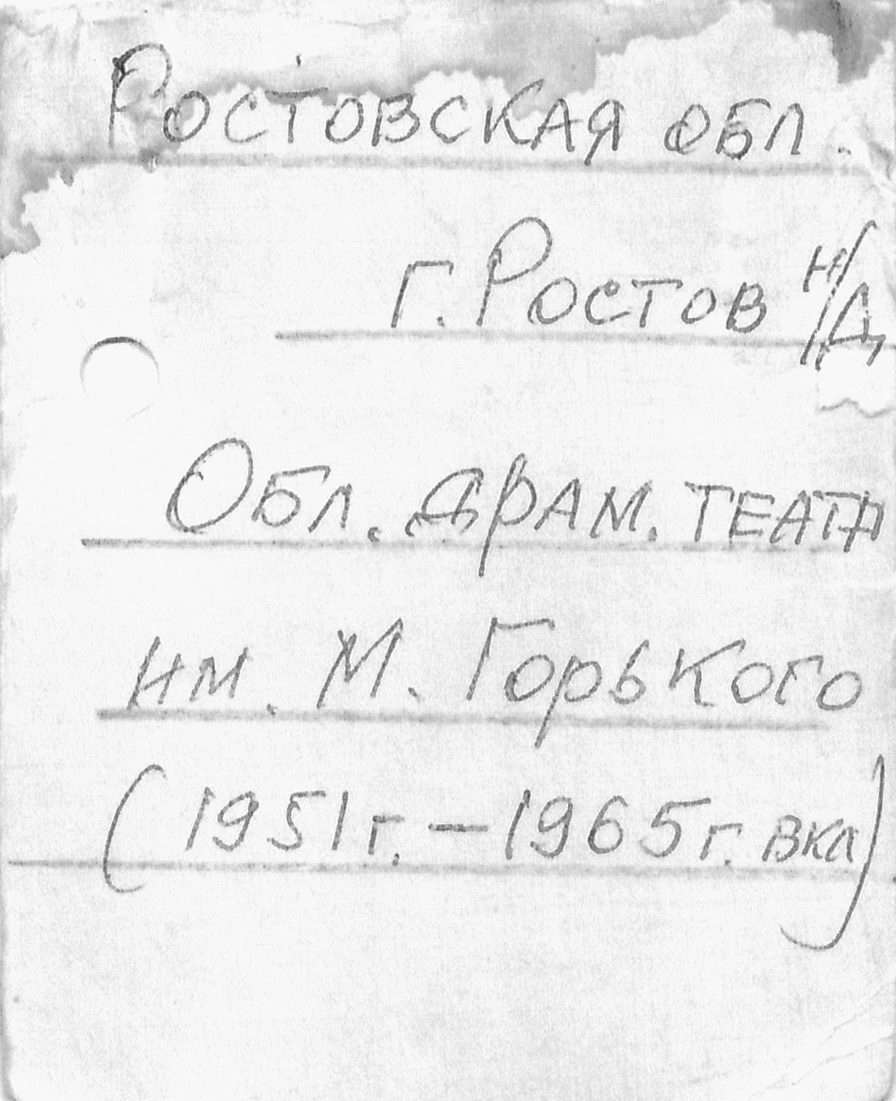 Ростовская обл.
г. Ростов н/Д
Обл. драм. театр
им. М. Горького
(1951г. – 1965г. вкл)